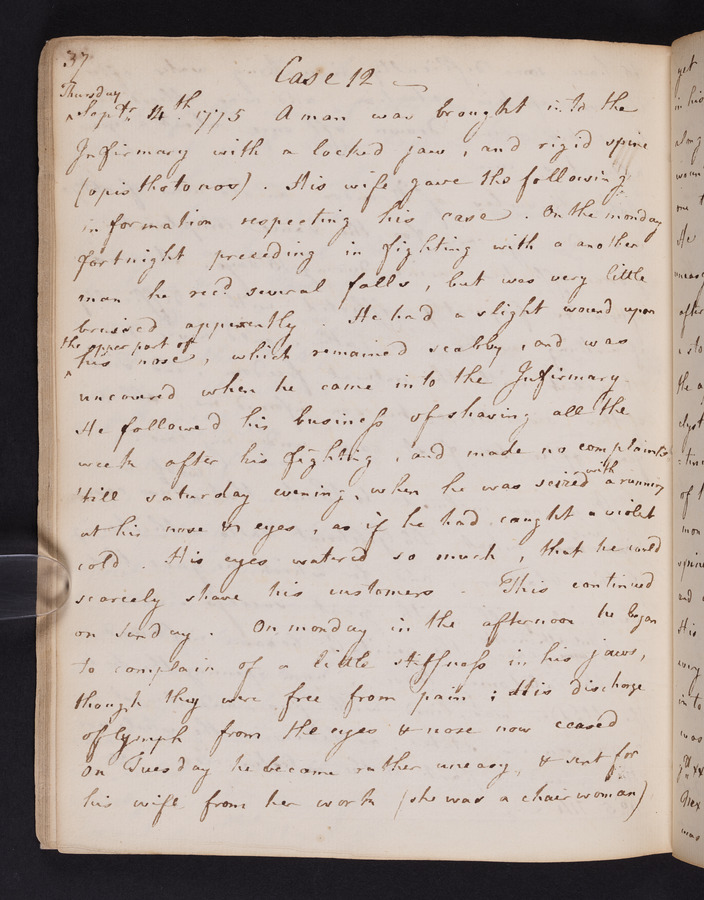 37
Case 12
Thursday
^ Septr. 14th. 1775 A man was brought into the
Infirmary with a locked jaw, and rigid spine
(opisthotonos). His wife gave the following
information respecting his case. On the monday
fortnight preceding in fighting with a another
man he recd. several falls, but was very little
bruised apparently. He had a slight wound upon
the upper part of
^ his nose, which remained scabby, and was
uncovered when he came into the Infirmary.
He followed his business of shaving all the
week after his fighting, and made no complaints
'till saturday evening, when he was seized with a running
at his nose & eyes, as if he had caught a violet
cold. His eyes watered so much, that he could
scarcely shave his customers. This continued
on sunday. On monday in the afternoon he began
to complain of a little stiffness in his jaws,
though they were free from pain; His discharge
of lymph from the eyes & nose now ceased
On Tuesday he became rather uneasy, & sent for
his wife from her work (she was a chairwoman)